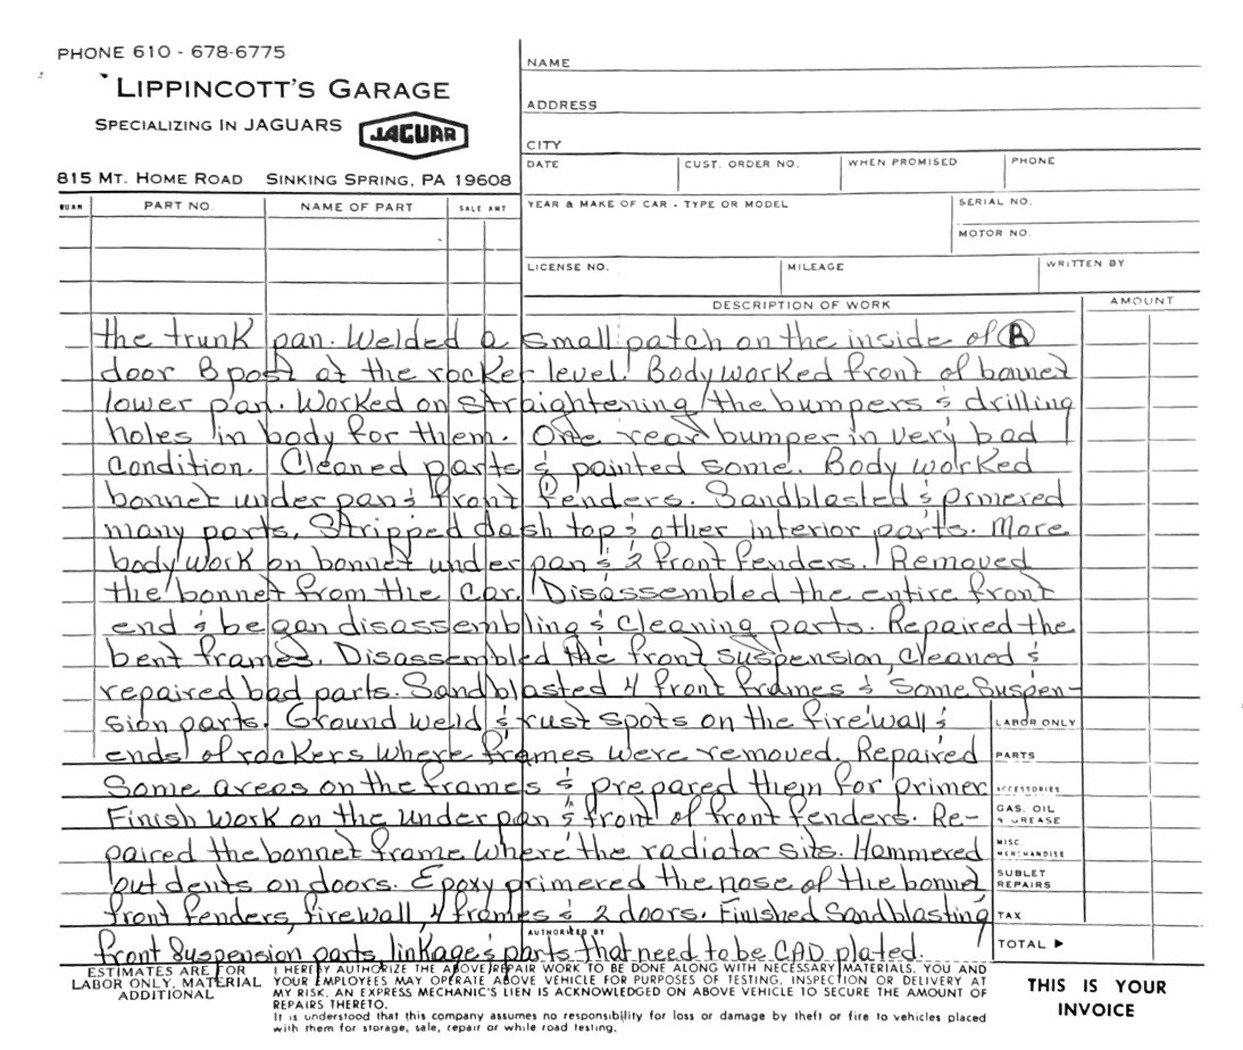 PHONE 610 - 678-6775
LIPPINCOTT'S GARAGE
SPECIALIZING IN JAGUARS
JAGUAR
815 MT. HOME ROAD SINKING SPRING, PA 19608
NAME
ADDRESS
CITY
DATE CUST. ORDER NO. WHEN PROMISED PHONE
QUAN PART NO. NAME OF PART SALE AMT
YEAR & MAKE OF CAR - TYPE OR MODEL SERIAL NO.
MOTOR NO.
LICENSE NO. MILEAGE WRITTEN BY
DESCRIPTION OF WORK AMOUNT
the trunk pan. Welded a small patch on the inside of Ⓡ
door B post at the rocker level. Body worked front of bonnet
lower pan. Worked on straightening the bumpers & drilling
holes in body for them. One rear bumper in very bad
condition. Cleaned parts & painted some. Body worked
bonnet under pan & front fenders. Sandblasted & primered
many parts. Stripped dash top & other interior parts. More
body work on bonnet under pan & 2 front fenders. Removed
the bonnet from the car. Disassembled the entire front
end & began disassembling & cleaning parts. Repaired the
bent frames. Disassembled the front suspension, cleaned &
repaired bad parts. Sandblasted 4 front frames & some Suspen-
sion parts. Ground weld & rust spots on the firewall &
ends of rockers where frames were removed. Repaired
Some areas on the frames & prepared them for primer
Finish work on the under pan & front of front fenders. Re-
paired the bonnet frame where the radiator sits. Hammered
out dents on doors. Epoxy primered the nose of the bonnet
front fenders, firewall, 4 frames & 2 doors. Finished Sandblasting
front suspension parts, linkage & parts that need to be CAD plated.
LABOR ONLY
PARTS
ACCESSORIES
GAS. OIL
& GREASE
MISC.
MERCHANDISE
SUBLET
REPAIRS
TAX
TOTAL ▶
AUTHORIZED BY
ESTIMATES ARE FOR
LABOR ONLY, MATERIAL
ADDITIONAL
I HEREBY AUTHORIZE THE ABOVE REPAIR WORK TO BE DONE ALONG WITH NECESSARY MATERIALS. YOU AND
YOUR EMPLOYEES MAY OPERATE ABOVE VEHICLE FOR PURPOSES OF TESTING, INSPECTION OR DELIVERY AT
MY RISK. AN EXPRESS MECHANIC'S LIEN IS ACKNOWLEDGED ON ABOVE VEHICLE TO SECURE THE AMOUNT OF
REPAIRS THERETO.
It is understood that this company assumes no responsibility for loss or damage by theft or fire to vehicles placed
with them for storage, sale, repair or while road testing.
THIS IS YOUR
INVOICE